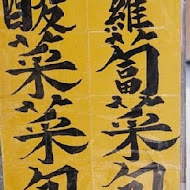 蘿蔔菜包
酸菜菜包